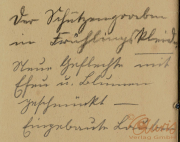 Der Schützengraben
im Frühlingskleid
Neue Geflechte mit
Efeu u. Blumen
geschmückt —
Eingebaute